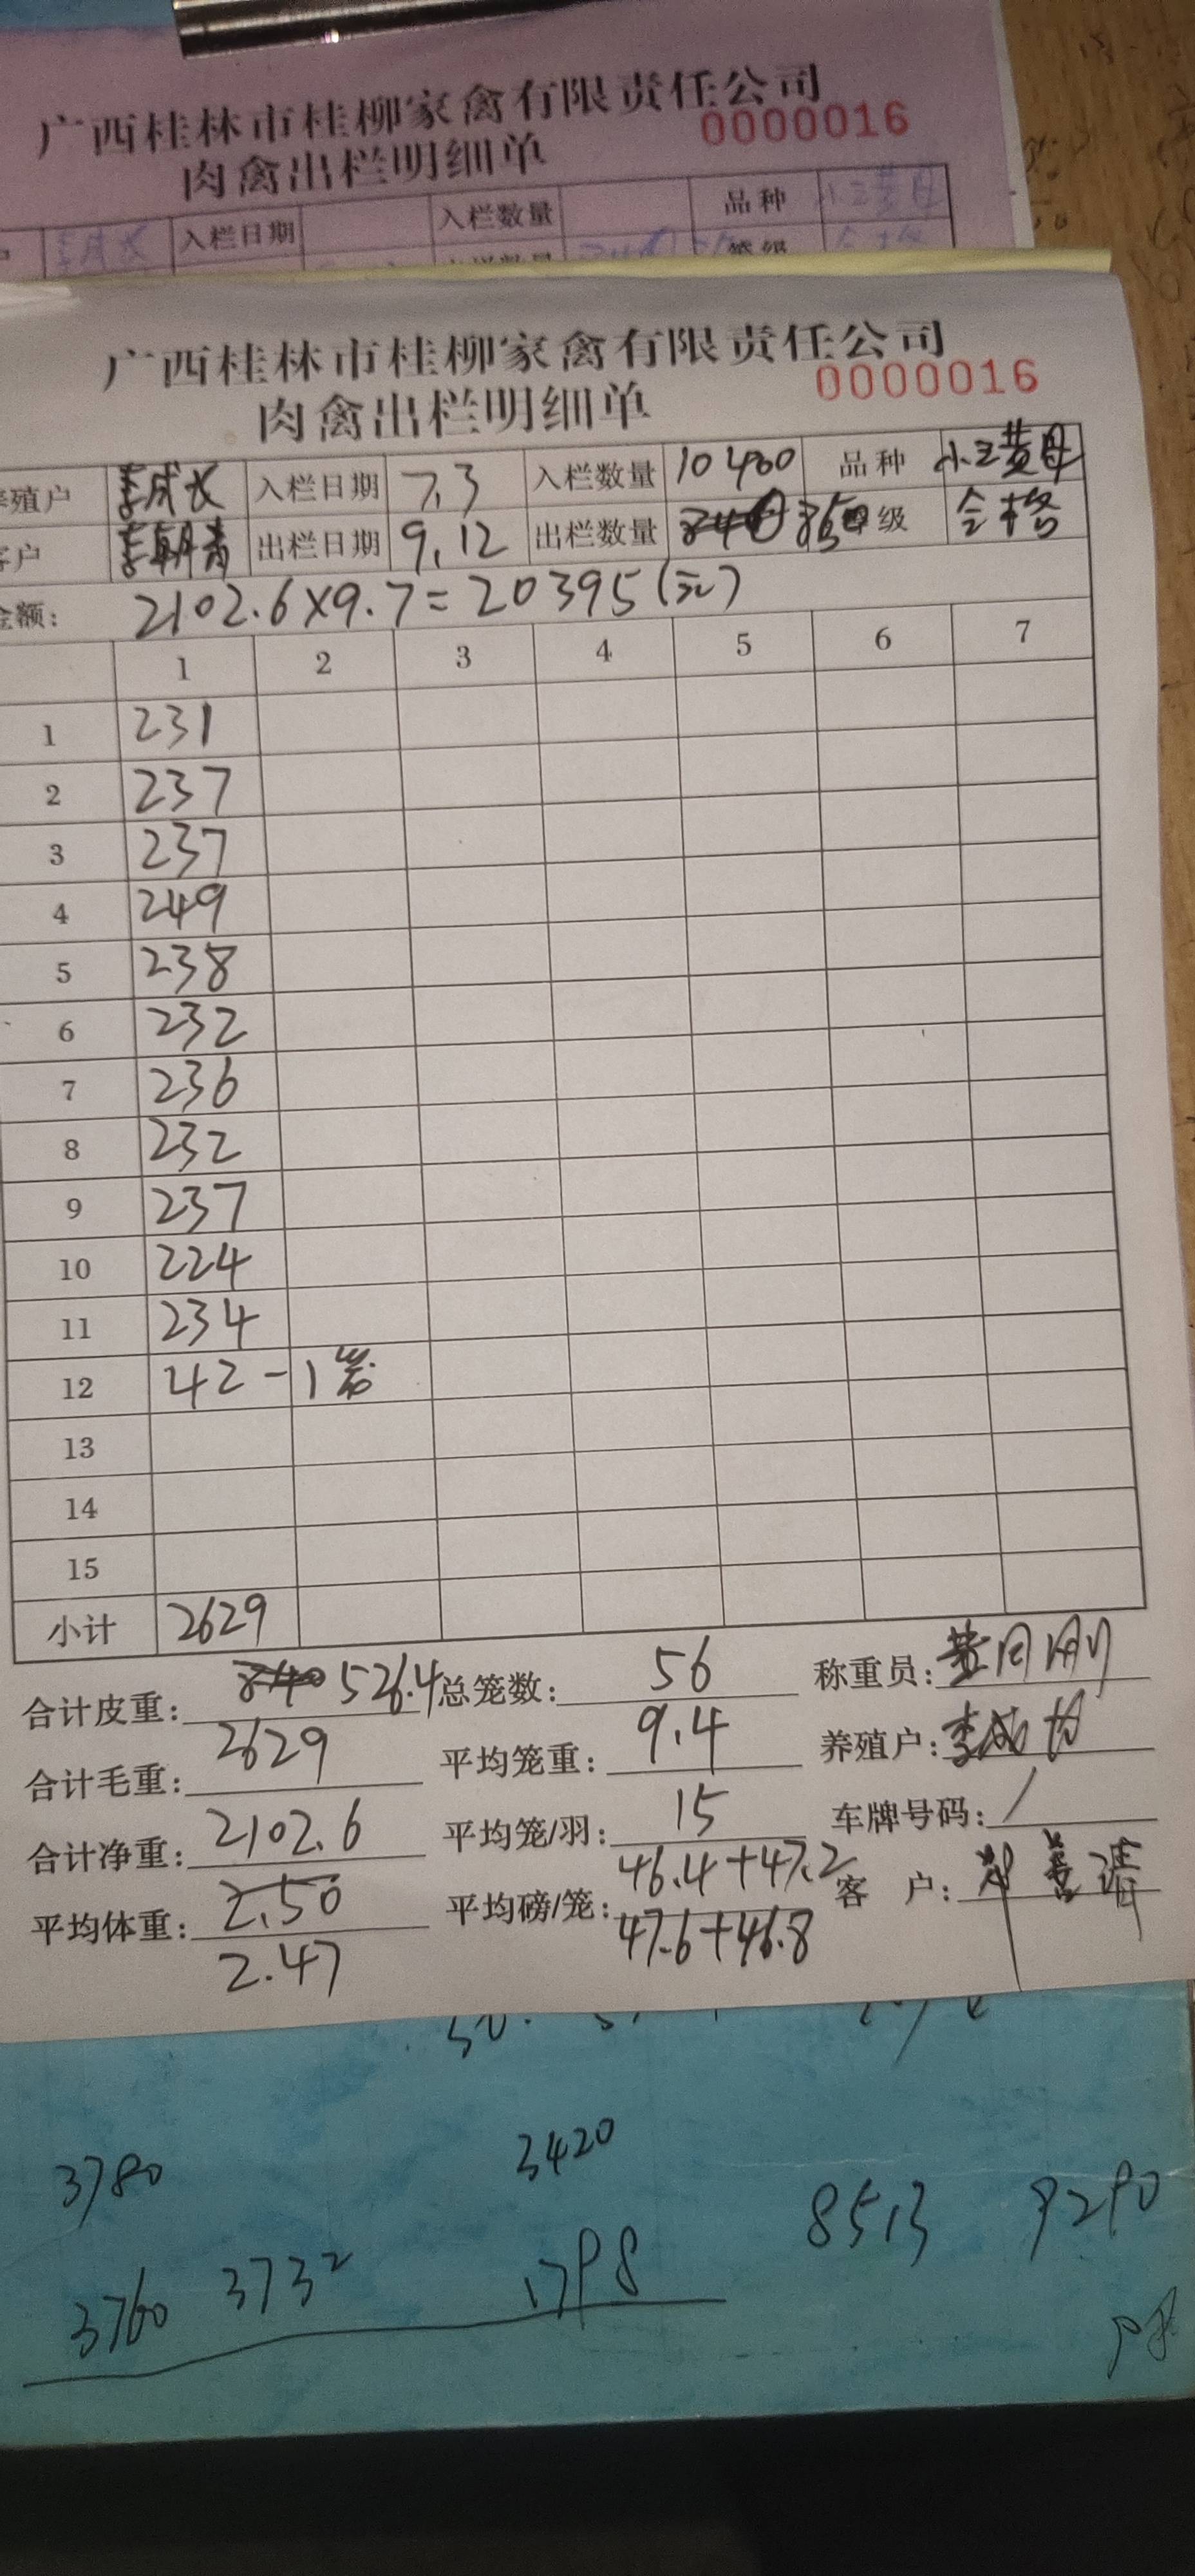 广西桂林市桂柳家禽有限责任公司
0000016
肉禽出栏明细单
李成长 入栏日期 入栏数量 品种 小三黄母
广西桂林市桂柳家禽有限责任公司
0000016
肉禽出栏明细单
养殖户 李成长 入栏日期 7.3 入栏数量 10400 品种 小三黄母
客户 李朝青 出栏日期 9.12 出栏数量 840 850 级 合格
金额: 2102.6×9.7=20395(元)
1 2 3 4 5 6 7
1 231
2 237
3 237
4 249
5 238
6 232
7 236
8 232
9 237
10 224
11 234
12 42-1笼
13
14
15
小计 2629
合计皮重: 526.4 总笼数: 56 称重员:
合计毛重: 2629 平均笼重: 9.4 养殖户:
合计净重: 2102.6 平均笼/羽: 15 车牌号码: /
平均体重: 2.50 平均磅/笼: 46.4+47.2 客户:
2.47 47.6+46.8
3780 3420
8513 9290
3760 3732 1798